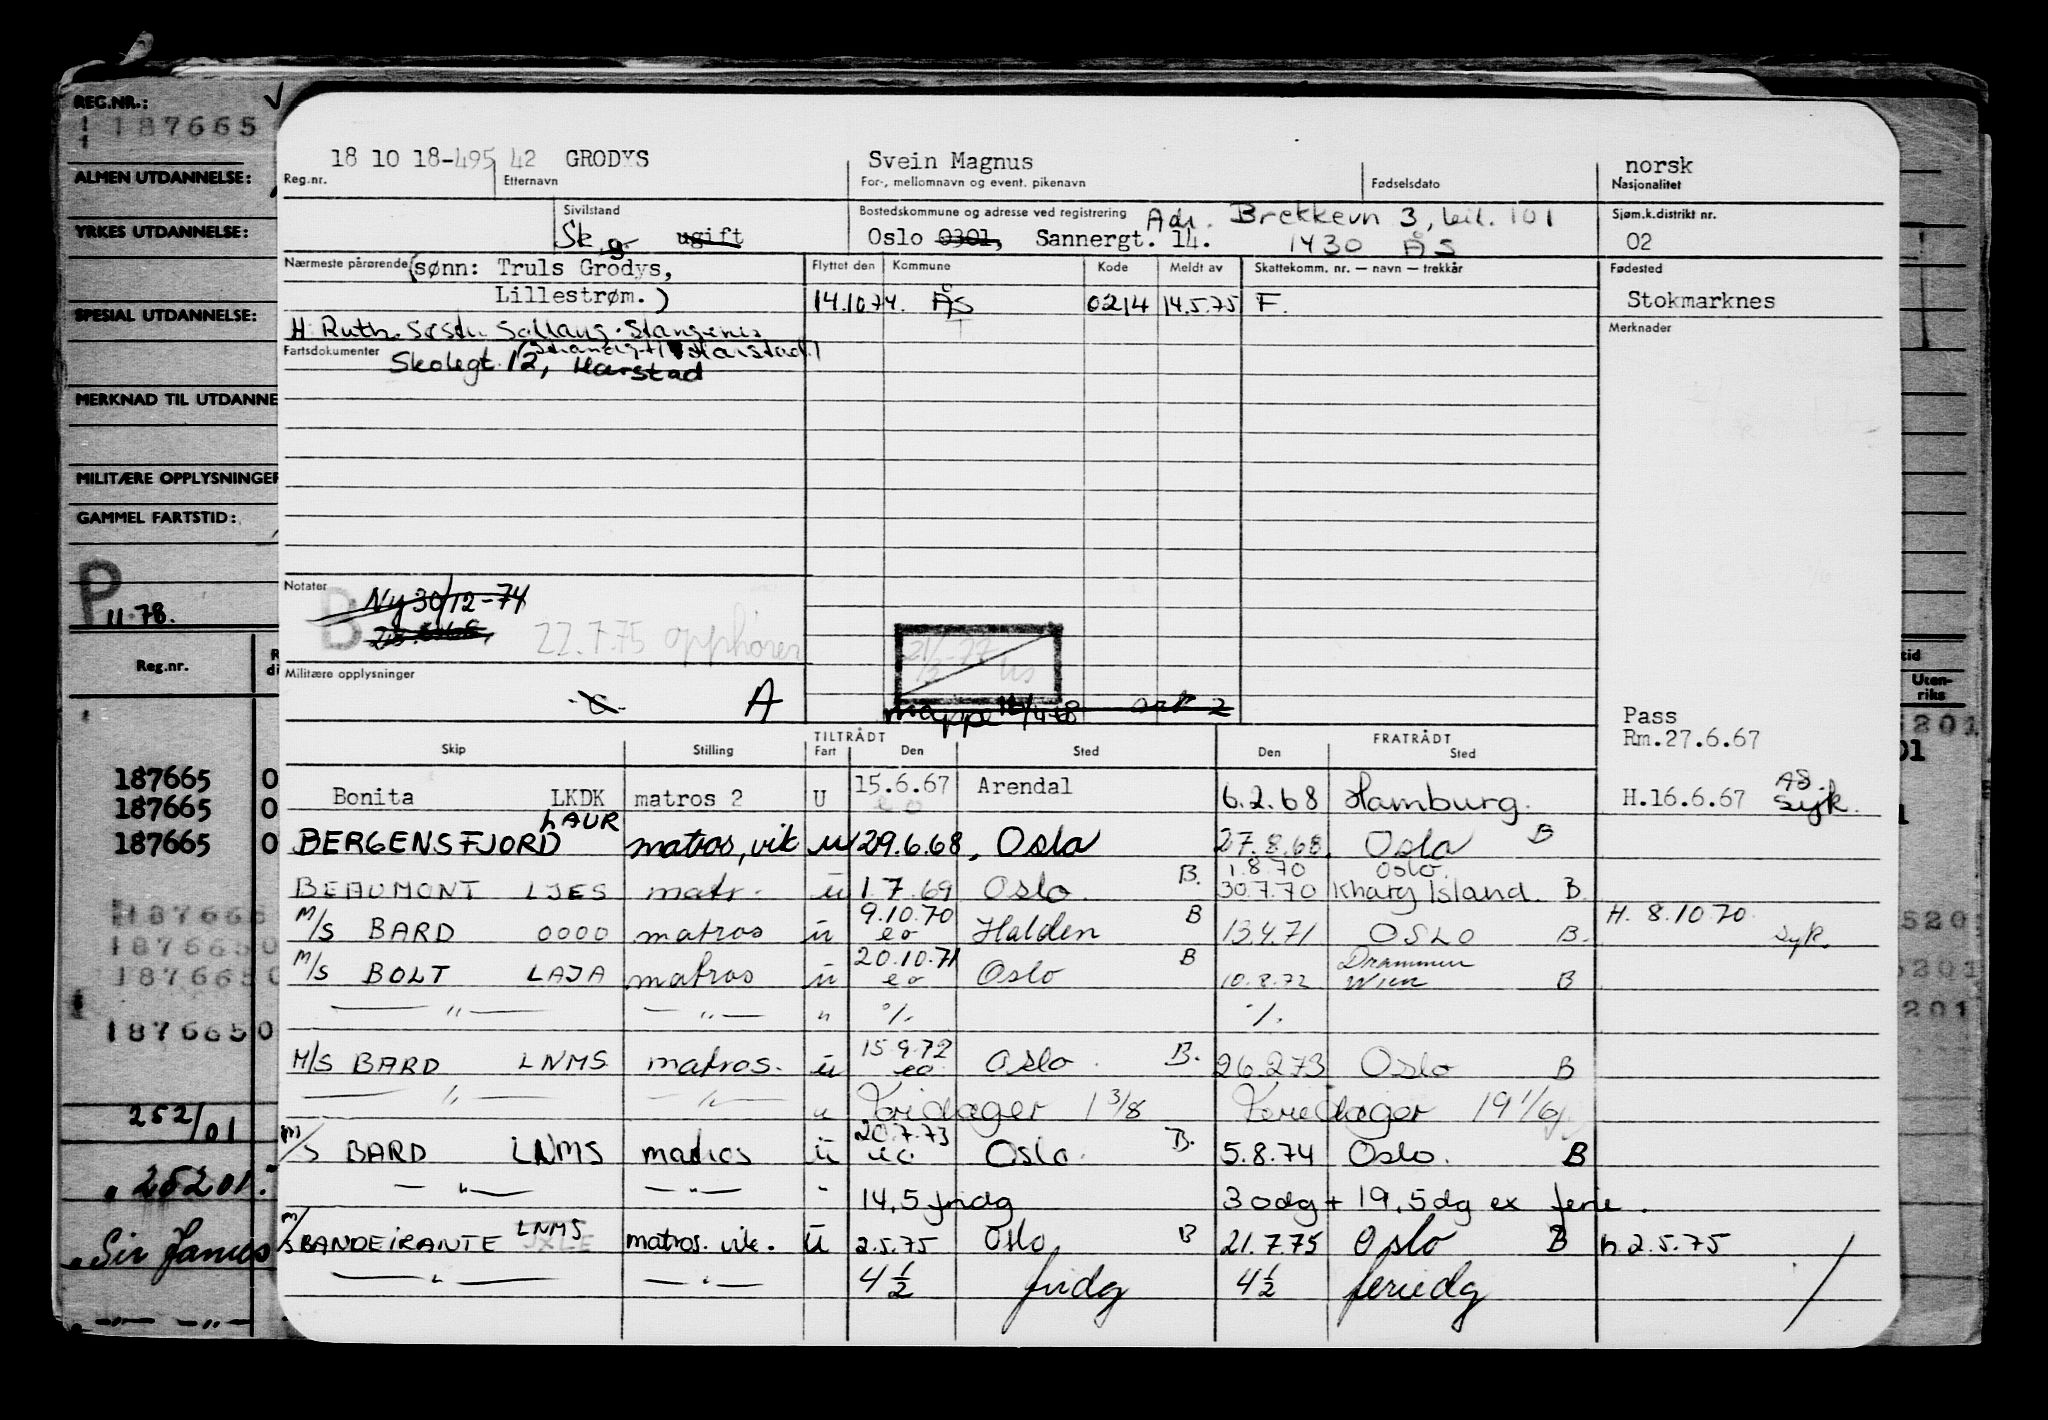 REG.NR.: 187665
ALMEN UTDANNELSE:
YRKES UTDANNELSE:
SPESIAL UTDANNELSE:
MERKNAD TIL UTDANNE
MILITÆRE OPPLYSNINGER
GAMMEL FARTSTID:
P
11.78.
Reg.nr.
187665 0
187665 0
187665 0
187665
187665 0
187665 0
187665 0
252/01
" 25201.
" Sir James
18 10 18-495 42 GRODYS Svein Magnus norsk
Reg.nr. Etternavn For-, mellomnavn og event. pikenavn Fødselsdato Nasjonalitet
Sivilstand Bostedskommune og adresse ved registrering Adr. Brekkevn 3, leil. 101 Sjøm.k.distrikt nr.
Sk. g. ugift Oslo 0301, Sannergt. 14. 1430 ÅS 02
Nærmeste pårørende (sønn: Truls Grodys, Flyttet den Kommune Kode Meldt av Skattekomm. nr. — navn — trekkår Fødested
Lillestrøm.) 14.10.74. ÅS 0214 14.5.75 F. Stokmarknes
H. Ruth Merknader
Fartsdokumenter
Skolegt. 12, Harstad
Notater
B Ny 30/12-74
22.7.75 opphører
Militære opplysninger
A
Pass
Rm.27.6.67
Skip Stilling TILTRÅDT Fart Den Sted FRATRÅDT Den Sted
Bonita LKDK matros 2 U 15.6.67 eo Arendal 6.2.68 Hamburg. H.16.6.67 AS. Syk.
BERGENSFJORD LAUR matros, vik u 29.6.68, Oslo 27.8.68. Oslo B
BEAUMONT LJES matr. u 1.7.69 Oslo B. 1.8.70 Oslo. 30.7.70 Kharg Island. B.
M/S BARD 0000 matros u 9.10.70 eo Halden B 13.4.71 OSLO B. H. 8.10.70. Syk.
M/S BOLT LAJA matros u 20.10.71 eo Oslo B 10.8.72 Drammen Wien B
— " — — " — " %. %.
M/S BARD LNMS matros. u 15.9.72 eo Oslo. B. 26.2.73 Oslo B
— " — — " — u Fridager 1 3/8 Feriedager 19 1/6
M/S BARD LNMS matros u 20.7.73 eo Oslo. B. 5.8.74 Oslo. B
— " — — " — " 14,5 fridg 30dg + 19,5dg ex ferie.
M/S BANDEIRANTE LNMS matros. vik. u 2.5.75 Oslo B 21.7.75 Oslo B h 2.5.75
— " — — " — 4½ fridg 4½ feriedg